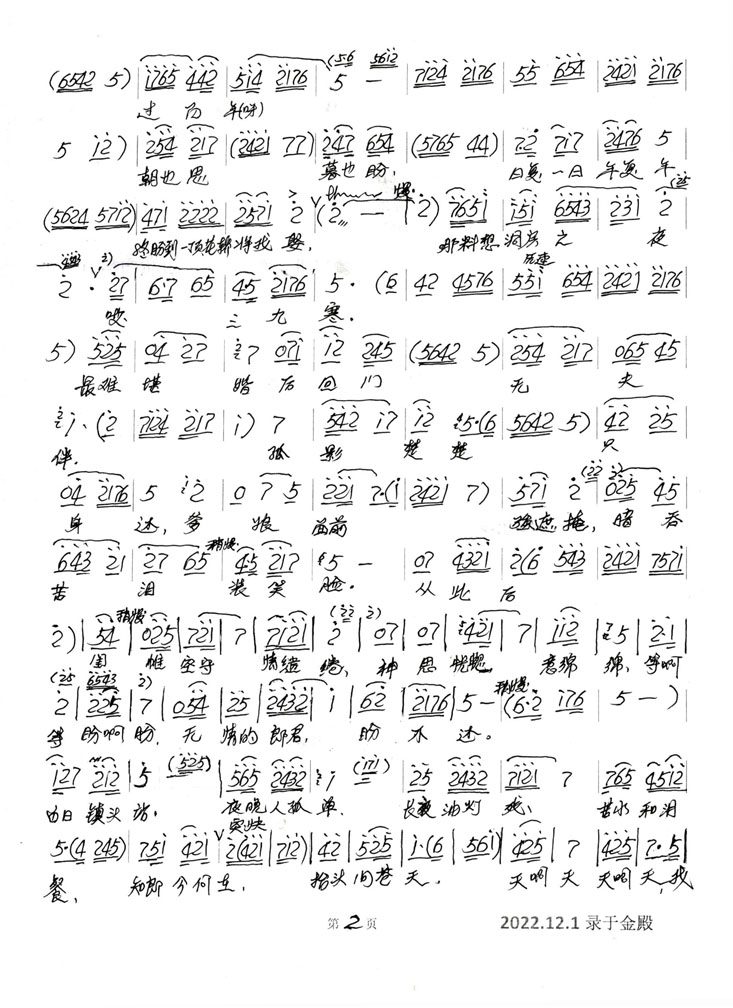 (6542 5) 1765 442 514 2176 (5·6 5612 5 — 7124 2176 55 654 2421 2176
过 历 年(呀)
5 12) 254 217 (2421 77) 247 654 (5765 44) 72 717 2476 5
朝也思 暮也盼, 日复一日 年复 年
(5624 5712) 471 2222 2571 2 (2 — 2) 7651 151 6543 231 2
终盼到一顶花轿将我 娶, 那料想 洞房 之 夜
2 · 27 6·7 65 45 2176 5 · (6 42 4576 551 654 2421 2176
哎 三 九 寒. 原速
5) 525 04 27 7 071 12 245 (5642 5) 254 217 065 45
最难 堪 婚 后 回 门 无 夫
1 · (2 724 217 1) 7 542 17 12 5·(6 5642 5) 42 25
伴. 孤 影 楚 楚 只
04 2176 5 2 0 7 5 221 7·(1 2421 7) 571 2 025 45
身 还, 爹 娘 面前 强遮 掩, 暗 吞
643 21 27 65 45 217 5 — 07 4321 2(6 543 2421 7571
苦 泪 稍慢 装 笑 脸. 从 此 后
2) 54 025 721 7 7121 2 07 07 421 7 112 5 2·1
稍慢 闺 帷 空守 情缱 绻, 神 思 恍惚, 意绵 绵, 等啊
2 225 7 054 25 2432 1 62 2176 5 — (6·2 176 5 — )
等 盼啊 盼, 无 情的 郎君, 盼 不 还。 稍慢
127 212 5 (525) 565 2432 1 (171) 25 2432 7121 7 765 4512
白日 镇头 站. 夜晚 人孤 单. 长夜 油灯 残, 苦水 和泪
5·(4 245) 751 421 2(421 712) 42 525 1·(6 561) 425 7 425 7·5
餐, 知郎 今何 在, 突快 抬头 问苍 天. 天啊 天 天啊 天, 我
第 2 页 2022.12.1 录于金殿